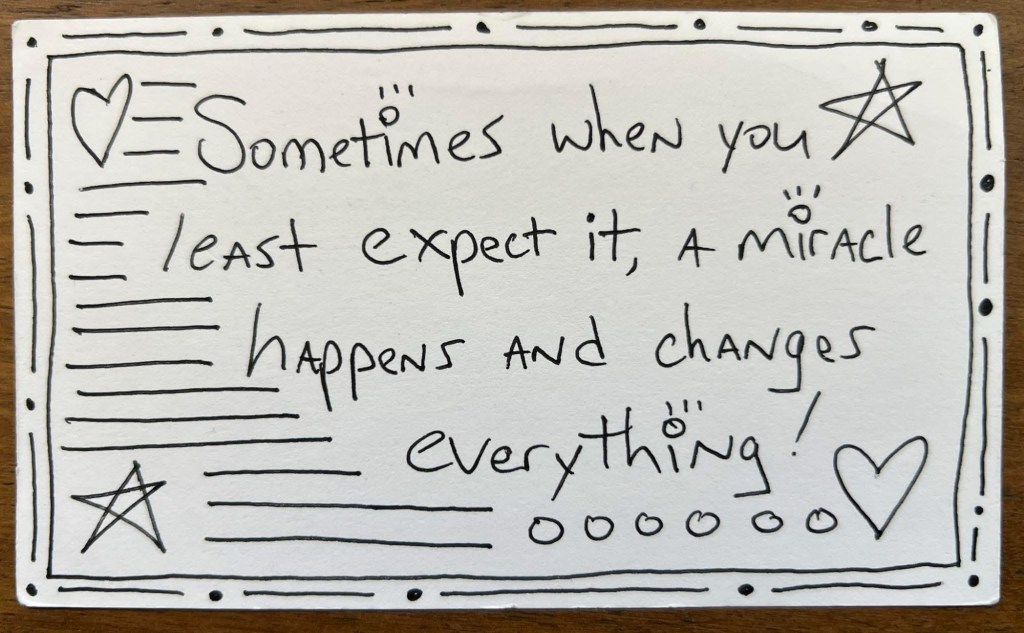 Sometimes when you
least expect it, a miracle
happens and changes
everything!